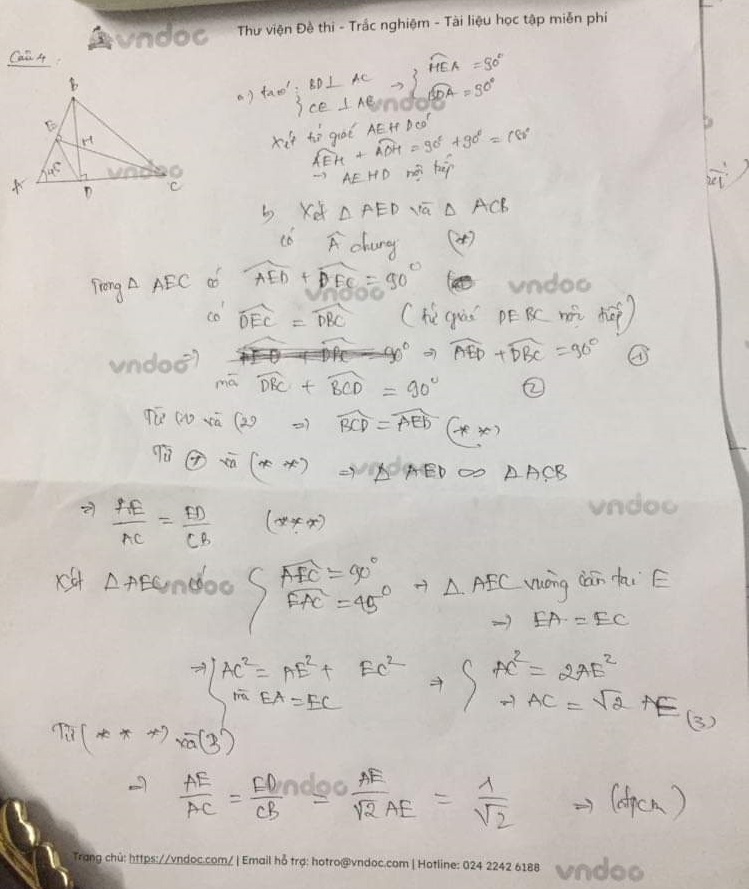 vndoc
Thư viện Đề thi - Trắc nghiệm - Tài liệu học tập miễn phí
Câu 4.
B
E
H
A
45
D
C
a) ta có: { BD ⊥ AC → { HEA = 90°
CE ⊥ AB BDA = 90°
Xét tứ giác AEHD có
AEH + ADH = 90° + 90° = 180°
→ AEHD nội tiếp
b, Xét △ AED và △ ACB
có Â chung (*)
Trong △ AEC có AED + DEC = 90°
có DEC = DBC (tứ giác DEBC nội tiếp)
=> AED + DBC = 90° => AED + DBC = 90° ①
mà DBC + BCD = 90° ②
Từ (1) và (2) => BCD = AED (**)
Từ và (**) => △ AED ∽ △ ACB
=> AE/AC = ED/CB (***)
Xét △ AEC có { AEC = 90° → △ AEC vuông cân tại E
EAC = 45°
=> EA = EC
=> { AC² = AE² + EC² => { AC² = 2AE²
mà EA = EC => AC = √2 AE (3)
Từ (***) và (3)
=> AE/AC = ED/CB = AE/√2 AE = 1/√2 => (đpcm)
Trang chủ: https://vndoc.com/ | Email hỗ trợ: hotro@vndoc.com | Hotline: 024 2242 6188
vndoc